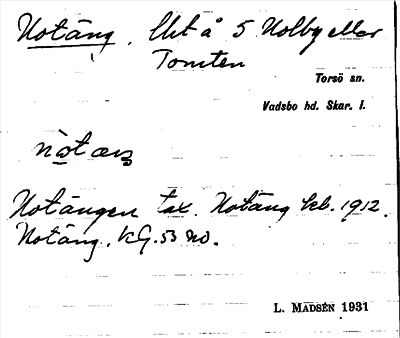 Notäng. Lht å 5 Nolby eller
Tomten
Torsö sn.
Vadsbo hd. Skar. l.
nòtæŋ
Notängen tax. Notäng kb. 1912.
Notäng. KG.53 no.
L. MADSÉN 1931